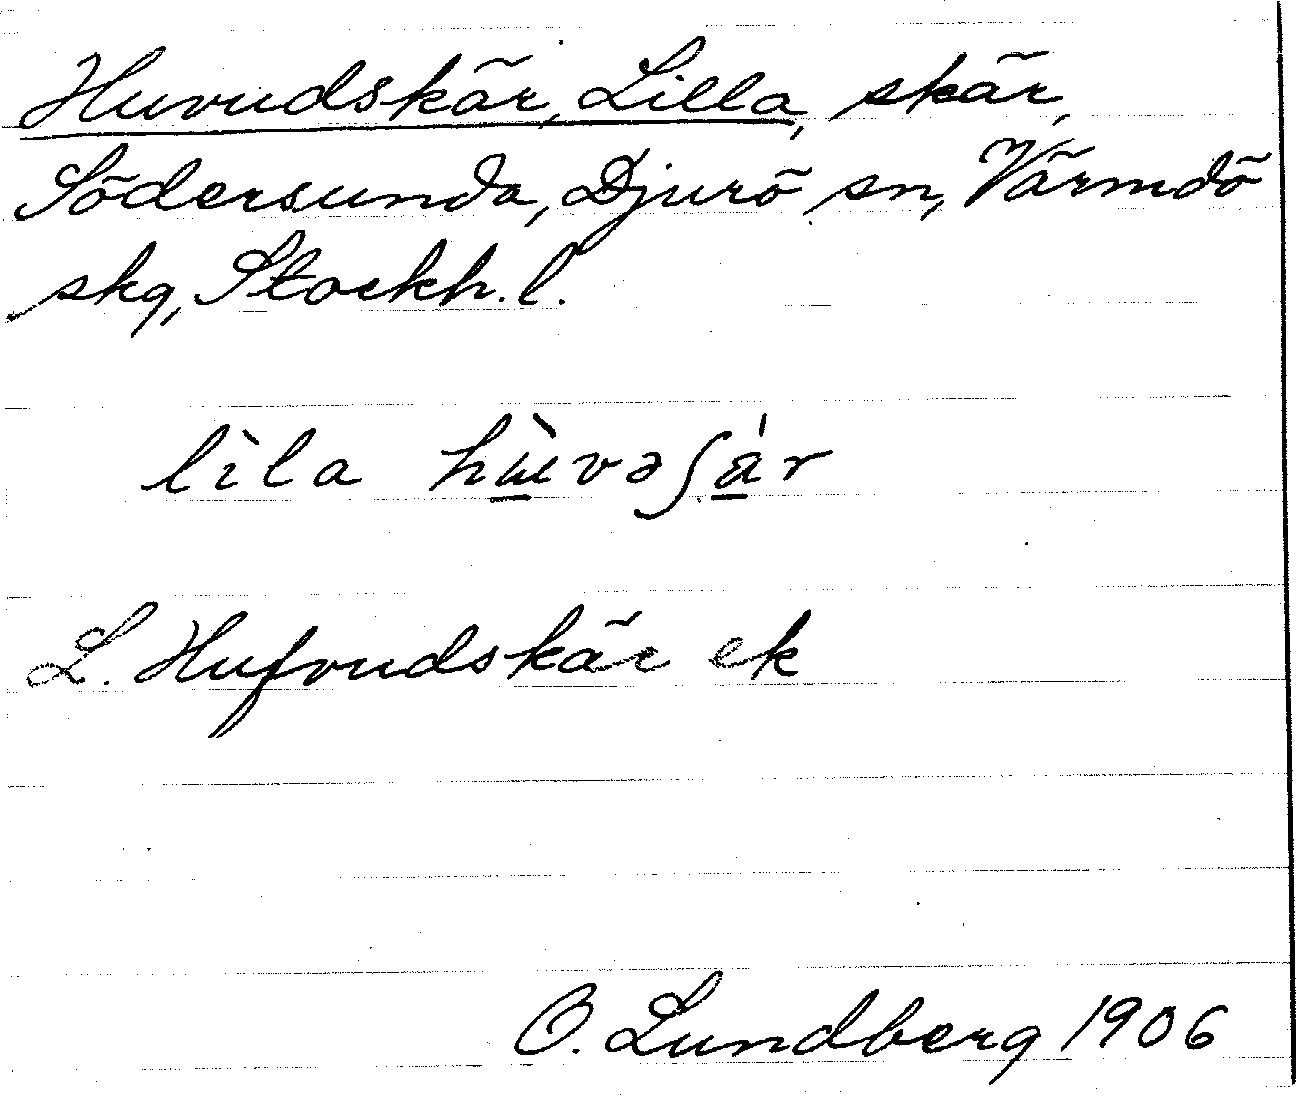 Huvudskär, Lilla, skär,
Södersunda, Djurö sn, Värmdö
skg, Stockh. l.
lìla hùvəʃár
L. Hufvudskär ek
O. Lundberg 1906